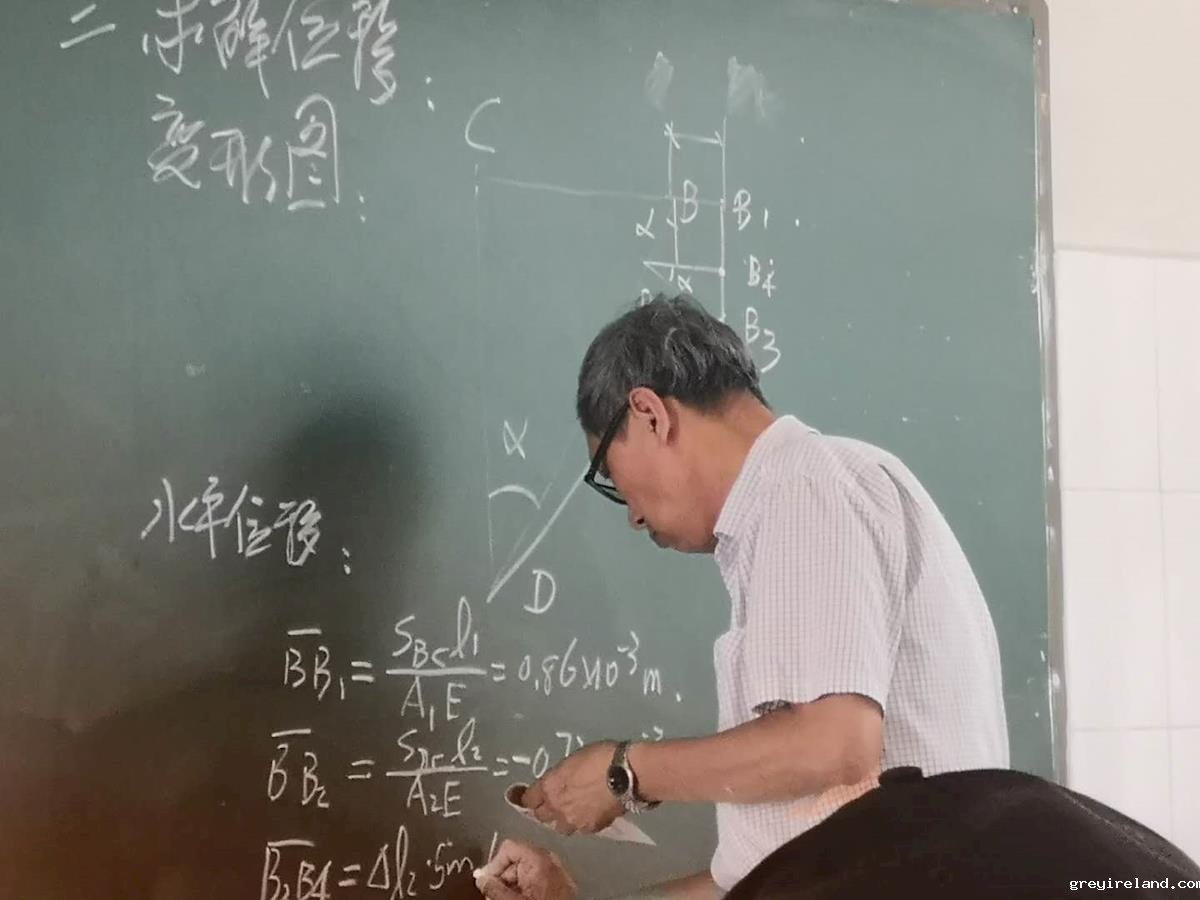 二 求解位移：
变形图：
C
B B₁
α
α B₄
B₃
α
水平位移：
D
B̅B̅₁ = S_BC l₁ / A₁E = 0.86×10⁻³ m.
B̅B̅₂ = l₂ / A₂E = -0.7
B̅₂B̅₄ = Δl₂·sin
greyireland.com